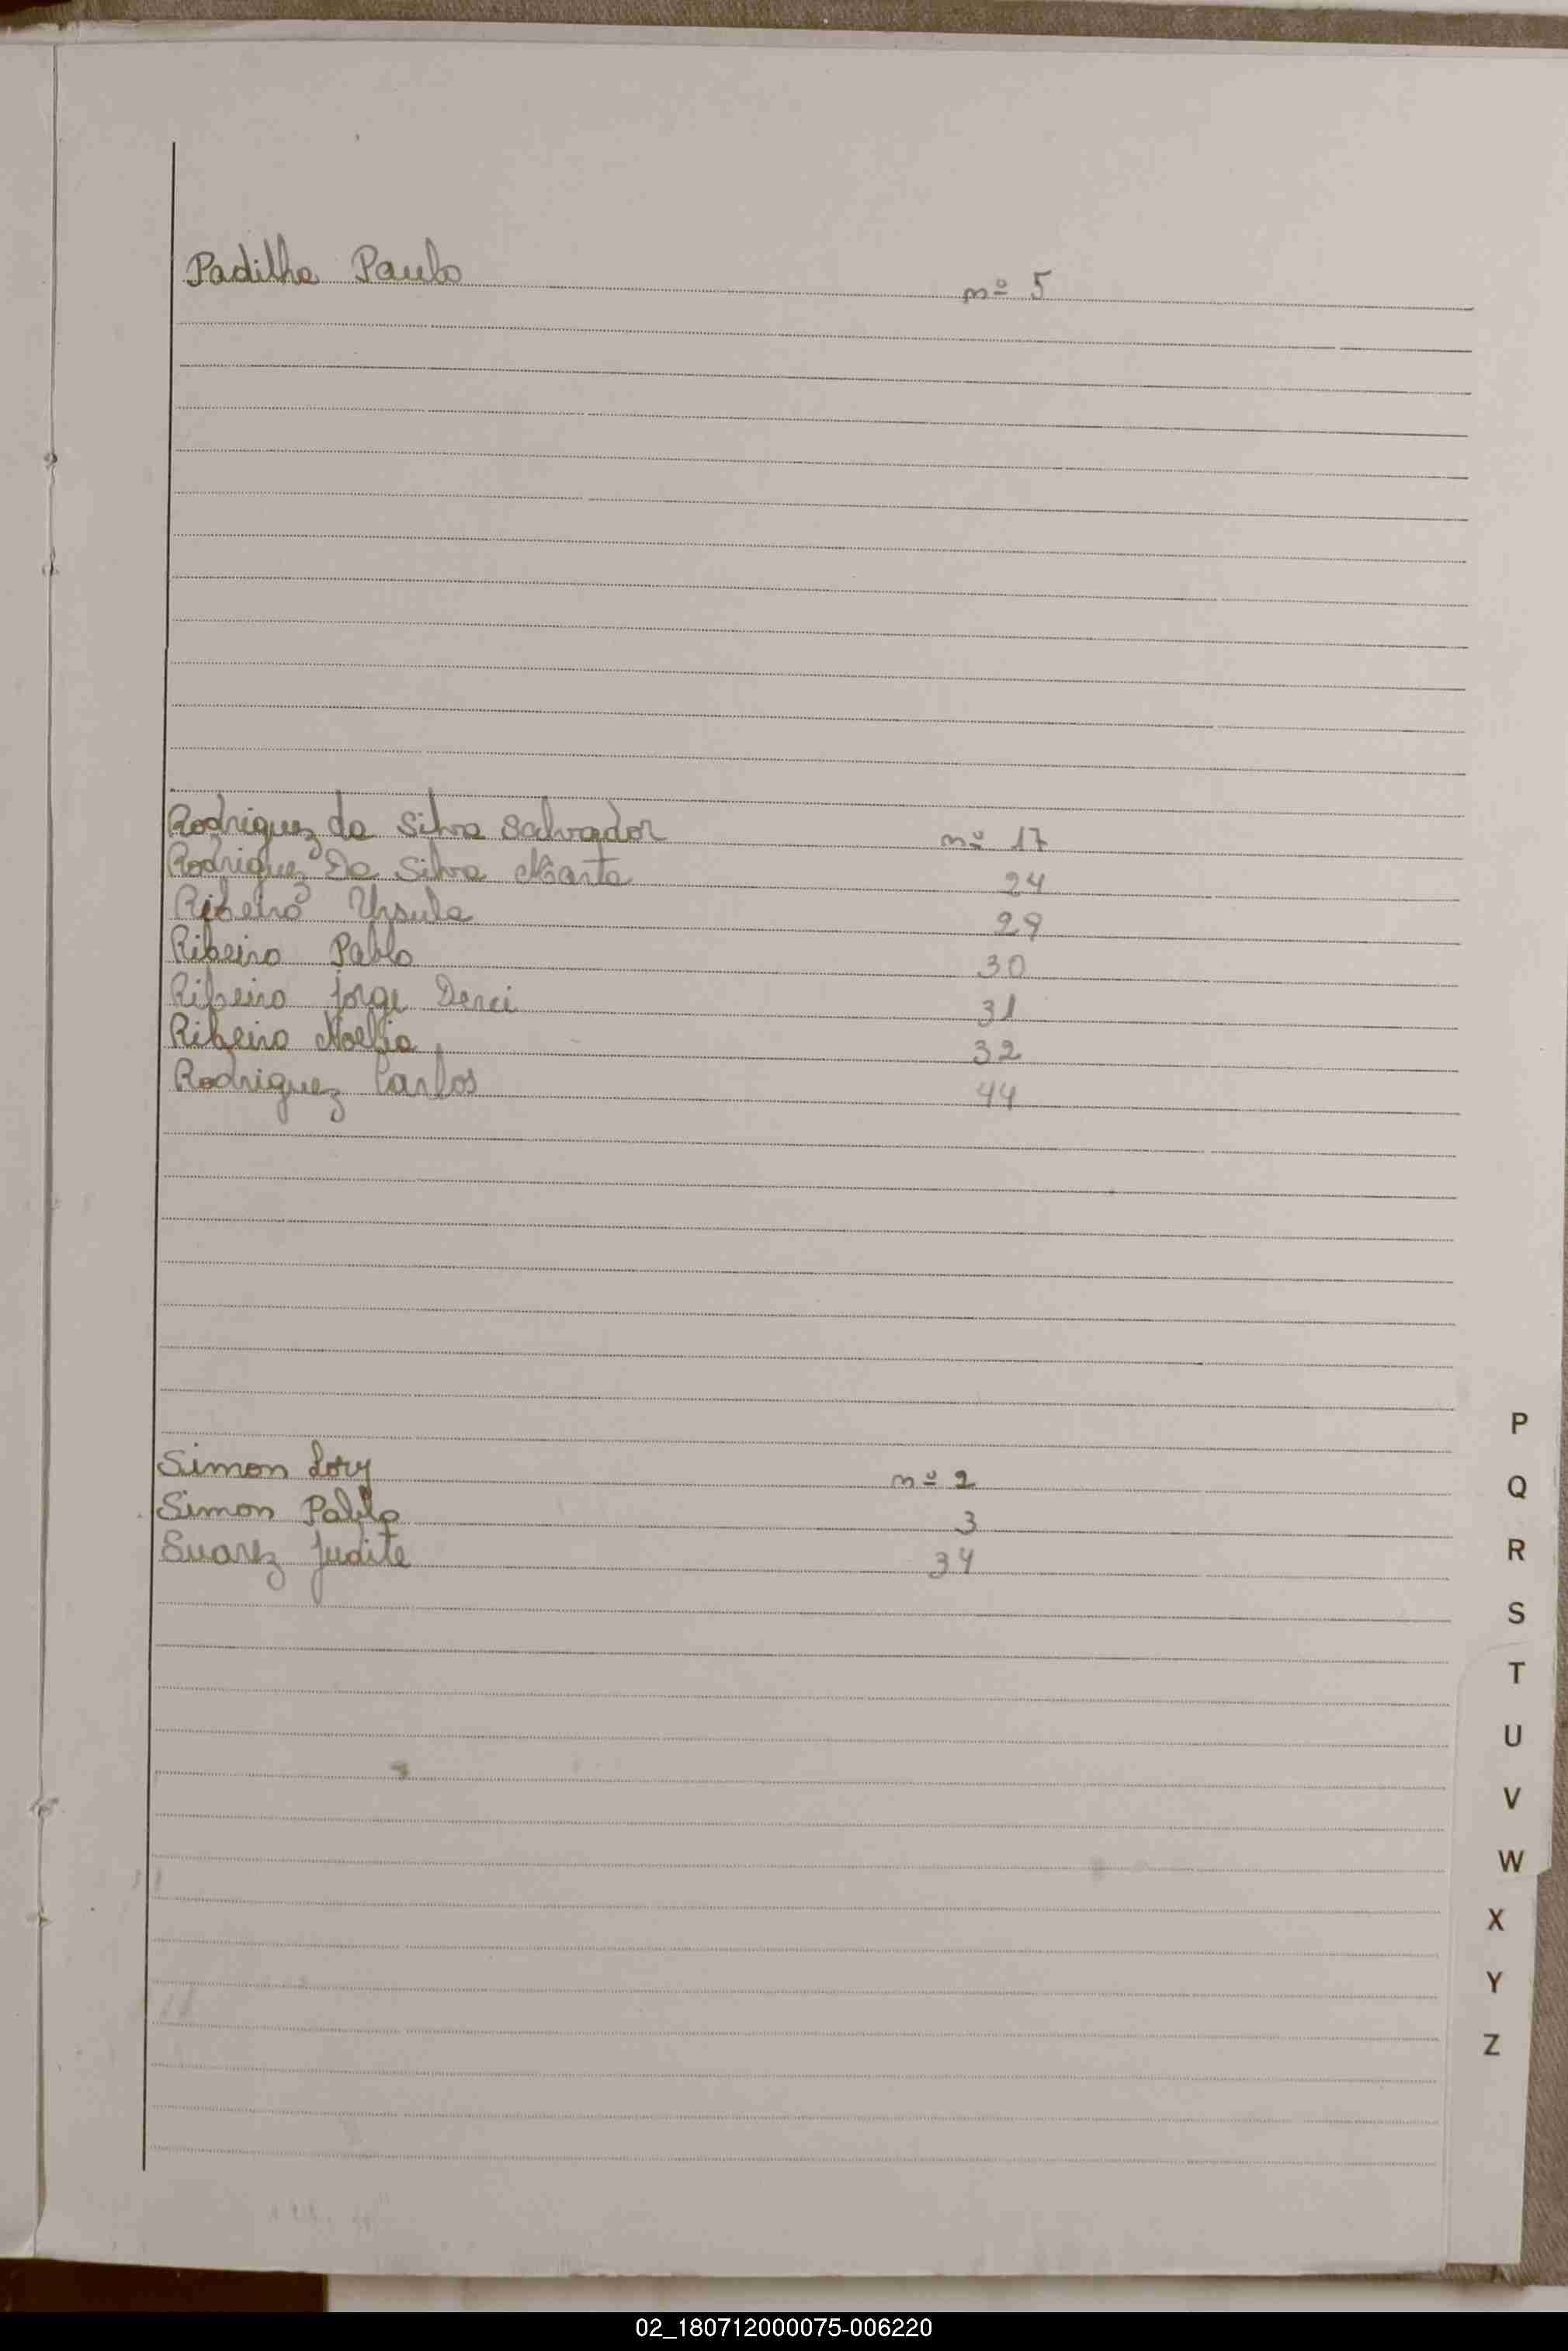 Padilha Paulo nº 5
Rodriguez da Silva Salvador nº 17
Rodriguez Da Silva Marta 24
Ribeiro Ursula 29
Ribeiro Pablo 30
Ribeiro Jorge Derci 31
Ribeiro Noelia 32
Rodriguez Carlos 44
Simon Lory nº 2
Simon Pablo 3
Suarez Judite 34
P
Q
R
S
T
U
V
W
X
Y
Z
02_180712000075-006220